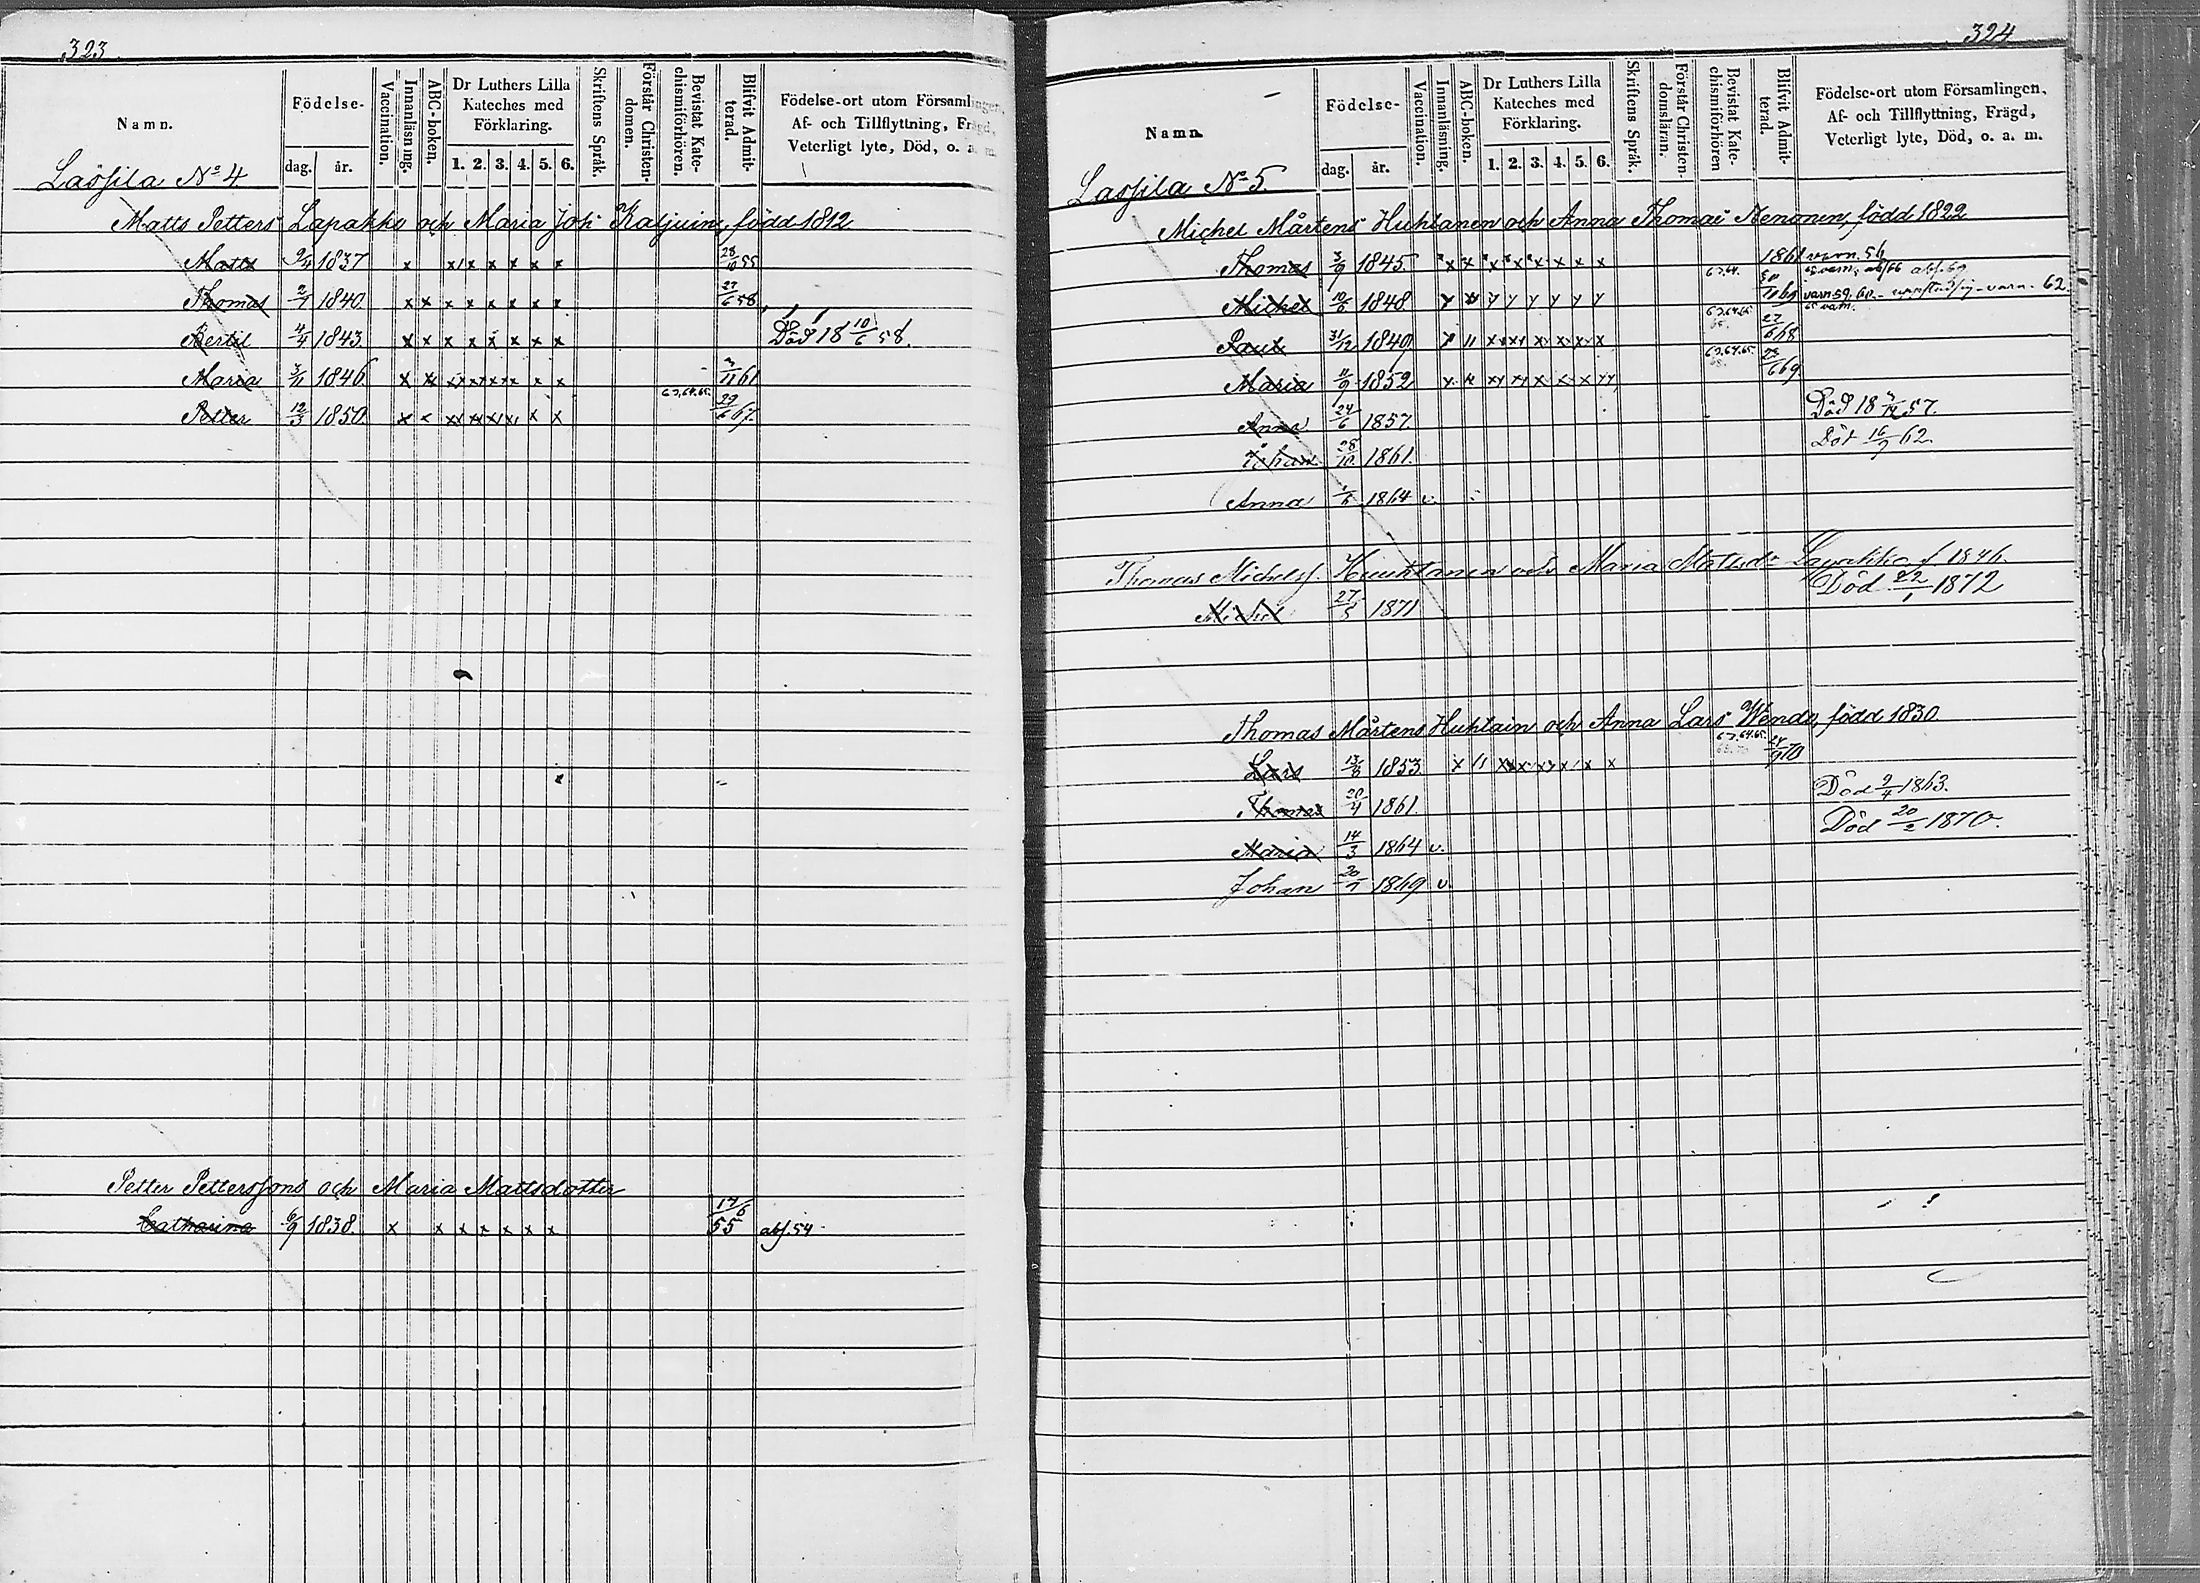 323
Namn. Födelse- dag. år. Vaccination. Innanläsning. ABC-boken. Dr Luthers Lilla Kateches med Förklaring. 1. 2. 3. 4. 5. 6. Skriftens Språk. Förstår Christendomen. Bevistat Katechismiförhören. Blifvit Admitterad. Födelse-ort utom Församlingen, Af- och Tillflyttning, Frägd, Veterligt lyte, Död, o. a. m.
Lassila No 4
Matts Petters Lapakko och Maria Joh. Katjuin, född 1812
Matts 9/4 1837 x x x x x x x 28/10 55
Thomas 2/7 1840 x x x x x x x x 27/6 58
Bertil 4/4 1843 x x x x x x x x Död 18 10/6 58.
Maria 3/11 1846 x x x x x x x x 3/11 61
Petter 12/3 1850. x x x x x x x x 63.64.65. 29/6 67.
Petter Petterssons och Maria Mattsdotter
Catharina 6/9 1838. x x x x x x x 17/6 55 abs. 54
324
Namn. Födelse- dag. år. Vaccination. Innanläsning. ABC-boken. Dr Luthers Lilla Kateches med Förklaring. 1. 2. 3. 4. 5. 6. Skriftens Språk. Förstår Christendomsläran. Bevistat Katechismiförhören Blifvit Admitterad. Födelse-ort utom Församlingen, Af- och Tillflyttning, Frägd, Veterligt lyte, Död, o. a. m.
Lassila No 5
Michel Mårtens Huhtanen och Anna Thomas Nenonen, född 1822
Thomas 3/9 1845. x x x x x x x x 1861 varn. 56
Michel 10/6 1848. 63.64. varn 59. 60. varn. 62
Paul 31/12 1849 63.64.65 27/6 68
Maria 11/9 1852 63.64.65. 6 69
Anna 24/6 1857 Död 18 57.
Johan 28/10 1861. Död 16/9 62.
Anna 1864 v.
Thomas Michelss. Huuhtanen och Maria Mattsdr Lapakko f. 1846.
Michel 27/5 1871 Död 22/1 1872
Thomas Mårtens Huhtain och Anna Lars Wendo, född 1830
Lars 13/8 1853. 63.64.65. 24/9 70
Thomas 20/4 1861. Död 9/4 1863.
Maria 14/3 1864 v. Död 20/2 1870.
Johan 20/7 1869 v.